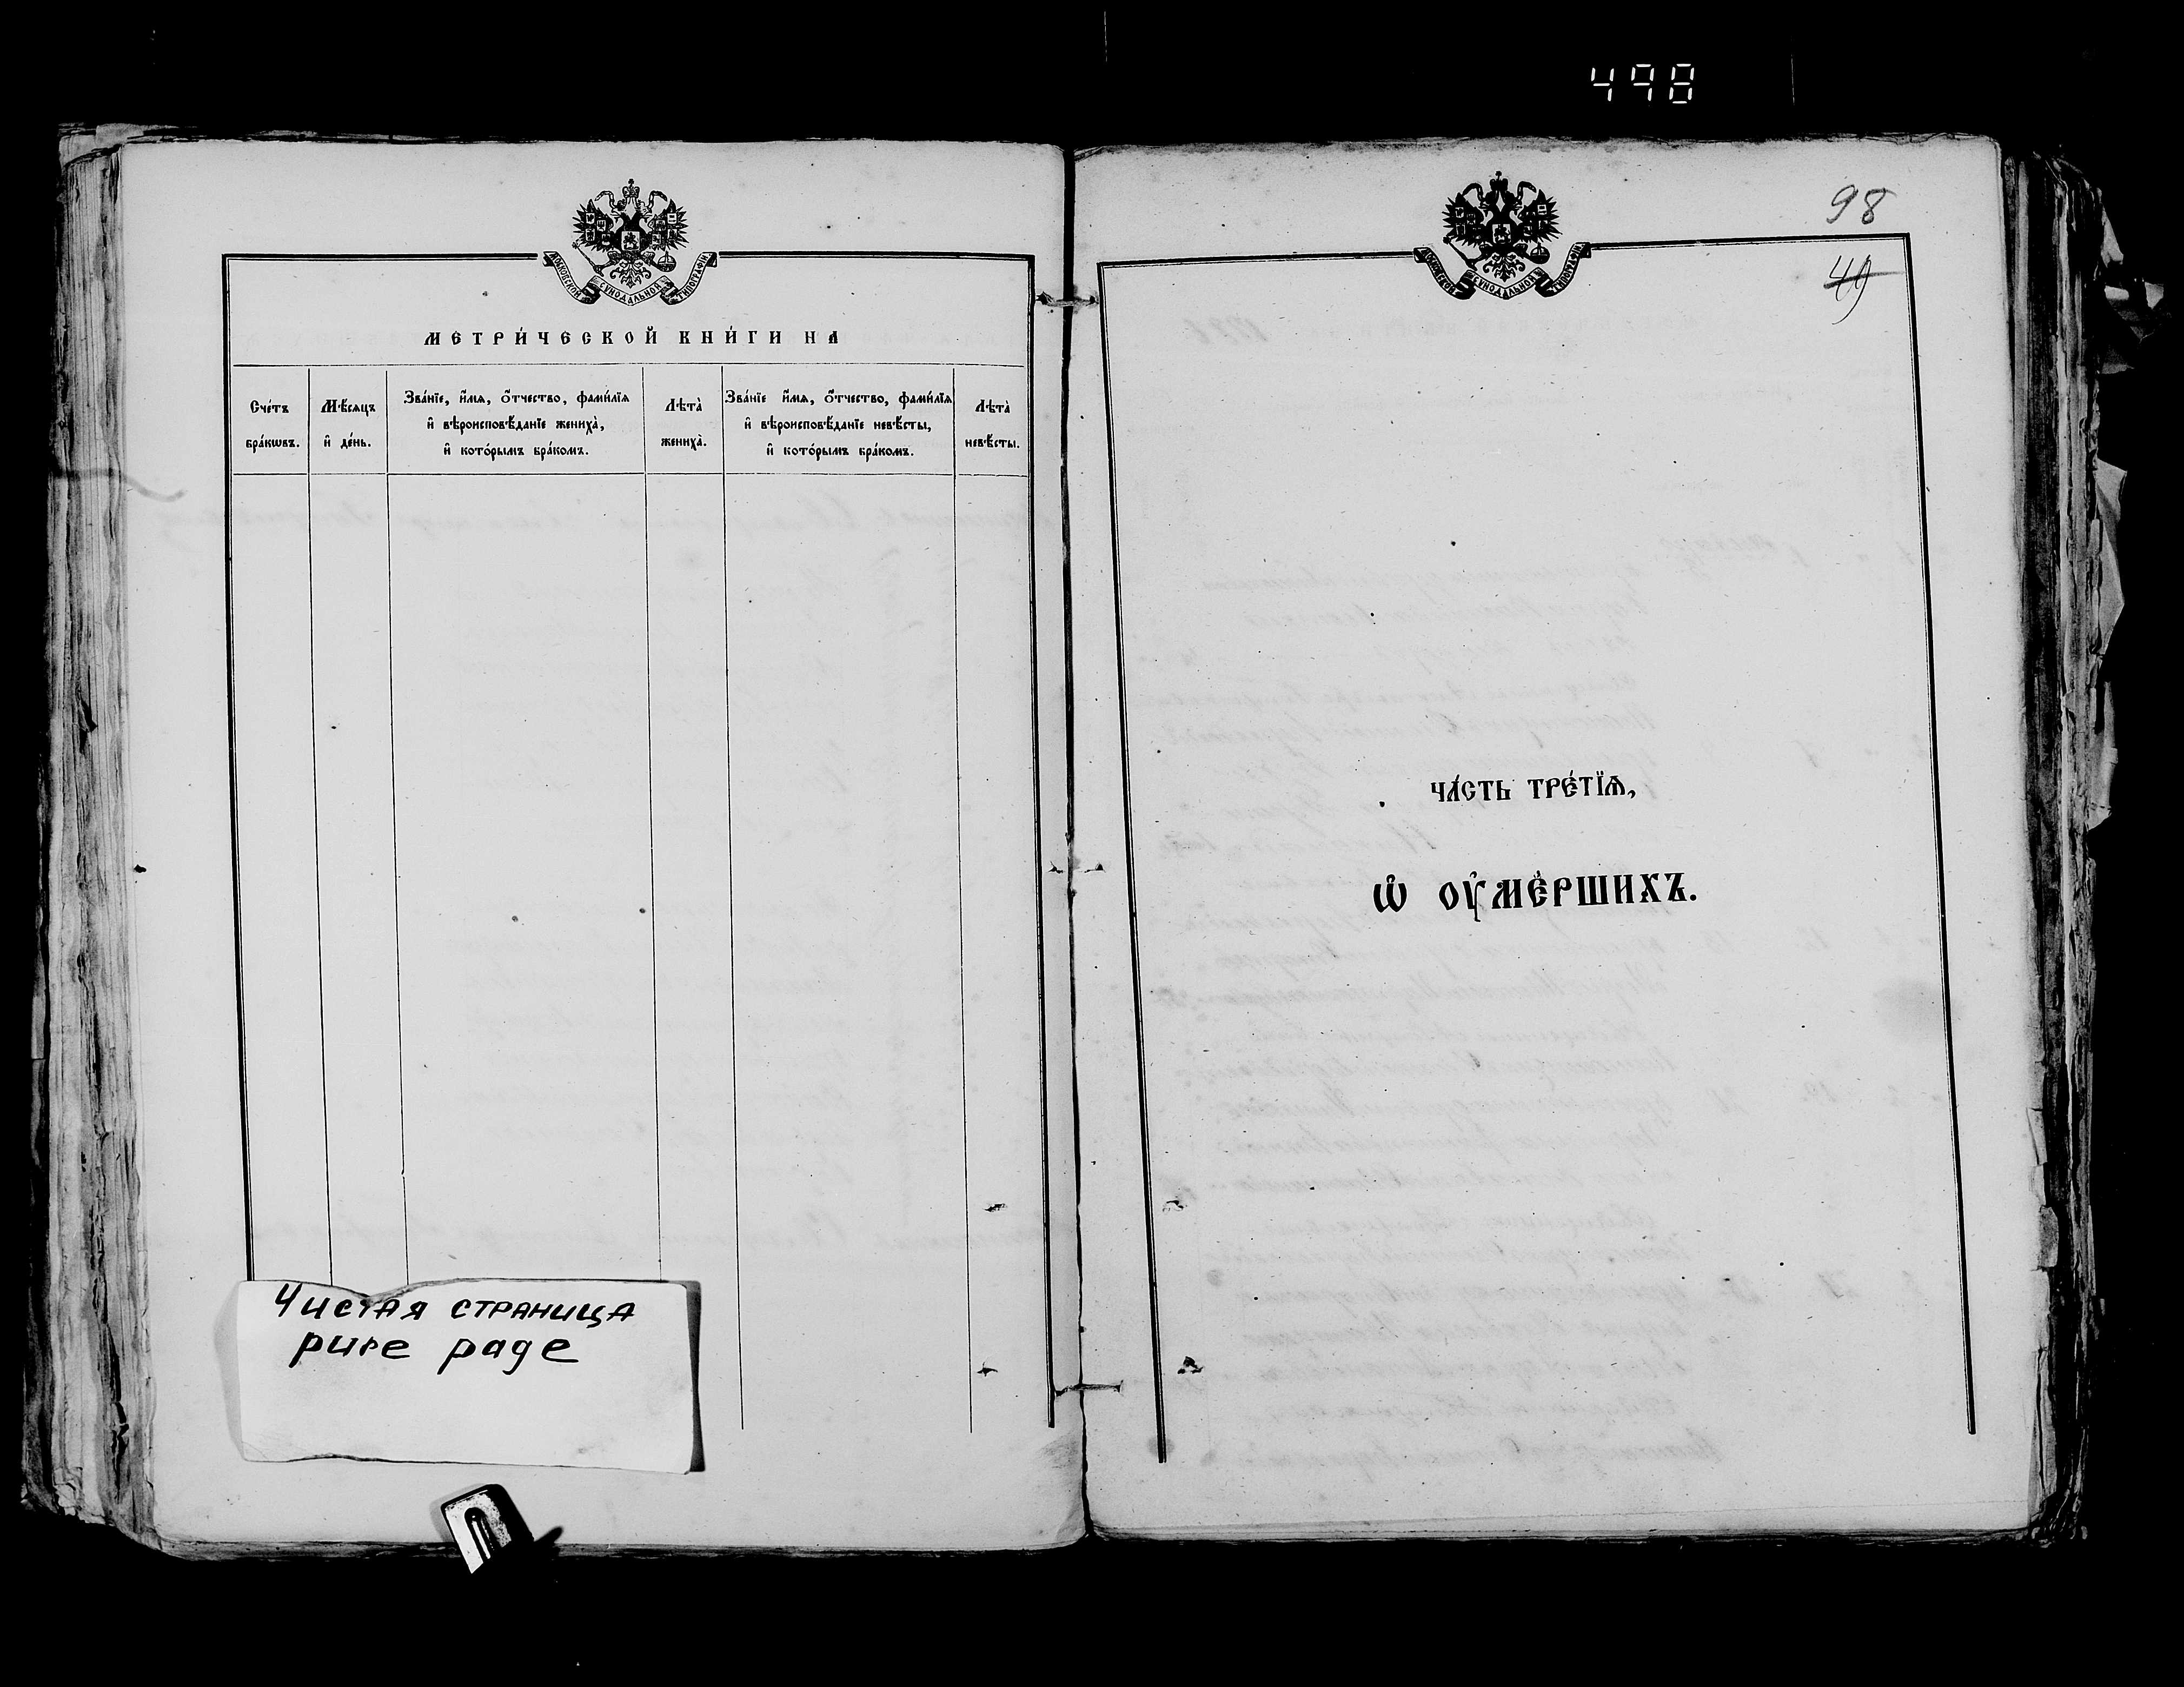 498
МОСКОВСКОЙ СѴНОДАЛЬНОЙ ТИПОГРАФІИ
МЕТРИ́ЧЕСКОЙ КНИ́ГИ НА
Сче́тъ бра́кѡвъ.
Мѣ́сяцъ и҆ де́нь.
Зва́нїе, и҆́мя, ѻ҆́тчество, фами́лїя
и҆ вѣроисповѣ́данїе жениха̀,
и҆ кото́рымъ бра́комъ.
Лѣта̀ жениха̀.
Зва́нїе и҆́мя, ѻ҆́тчество, фами́лїя
и҆ вѣроисповѣ́данїе невѣ́сты,
и҆ кото́рымъ бра́комъ.
Лѣта̀ невѣ́сты.
Чистая страница
pure page
МОСКОВСКОЙ СѴНОДАЛЬНОЙ ТИПОГРАФІИ
98
49
ЧА́СТЬ ТРЕ́ТЇѦ,
Ѡ҆ ОУ҆МЕ́РШИХЪ.